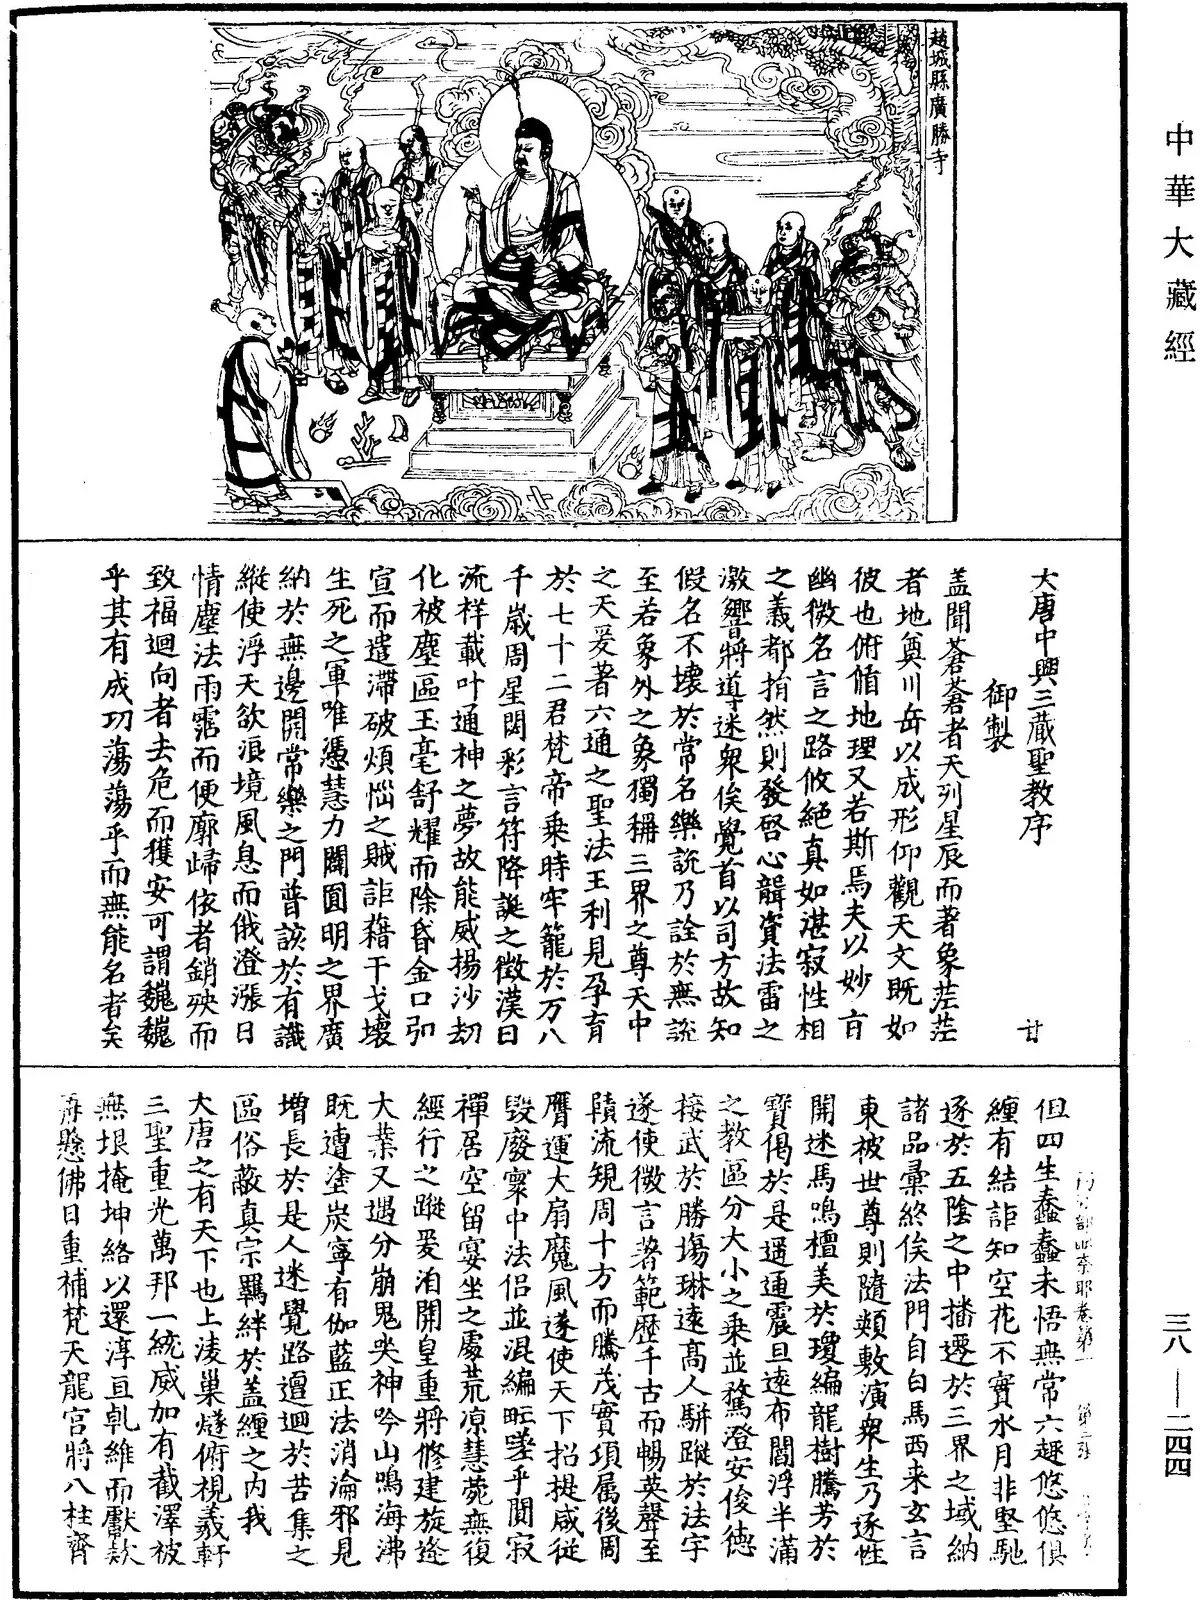 中華大藏經
趙城縣廣勝寺
大唐中興三藏聖教序
御製
甘
蓋聞蒼蒼者天列星辰而著象茫茫
者地奠川岳以成形仰觀天文既如
彼也俯脩地理又若斯焉夫以妙旨
幽微名言之路攸絕真如湛寂性相
之義都捐然則發啓心韻資法雷之
激響將導迷衆俟覺首以司方故知
假名不壞於常名樂說乃詮於無說
至若象外之象獨稱三界之尊天中
之天爰著六通之聖法王利見孕育
於七十二君梵帝乘時牢籠於万八
千歲周星閟彩言符降誕之徵漢日
流祥載叶通神之夢故能威揚沙劫
化被塵區玉毫舒耀而除昏金口弘
宣而遣滯破煩惱之賊詎藉干戈壞
生死之軍唯憑慧力闢圓明之界廣
納於無邊開常樂之門普該於有識
縱使浮天欲浪境風息而俄澄漲日
情塵法雨霑而便廓歸依者銷殃而
致福迴向者去危而獲安可謂巍巍
乎其有成功蕩蕩乎而無能名者矣
但四生蠢蠢未悟無常六趣悠悠俱
纏有結詎知空花不實水月非堅馳
逐於五陰之中播遷於三界之域納
諸品彙終俟法門自白馬西來玄言
東被世尊則隨類敷演衆生乃逐性
開迷馬鳴檀美於瓊編龍樹騰芳於
寶偈於是遍通震旦遠布閻浮半滿
之教區分大小之乘並騖澄安俊德
接武於勝場琳遠高人騈蹤於法宇
遂使微言著範歷千古而暢英聲至
賾流規周十方而騰茂實項屬後周
膺運大扇魔風遂使天下招提咸從
毀廢寰中法侶並混編甿嗟乎閴寂
禪居空留宴坐之處荒凉慧苑無復
經行之蹤爰洎開皇重將修建旋逢
大業又遇分崩鬼哭神吟山鳴海沸
既遭塗炭寧有伽藍正法消淪邪見
增長於是人迷覺路邅迴於苦集之
區俗蔽真宗羈絆於蓋纏之內我
大唐之有天下也上凌巢燧俯視羲軒
三聖重光萬邦一統威加有截澤被
無垠掩坤絡以還淳亘乹維而獻款
再懸佛日重補梵天龍宮將八柱齊
三八—二四四